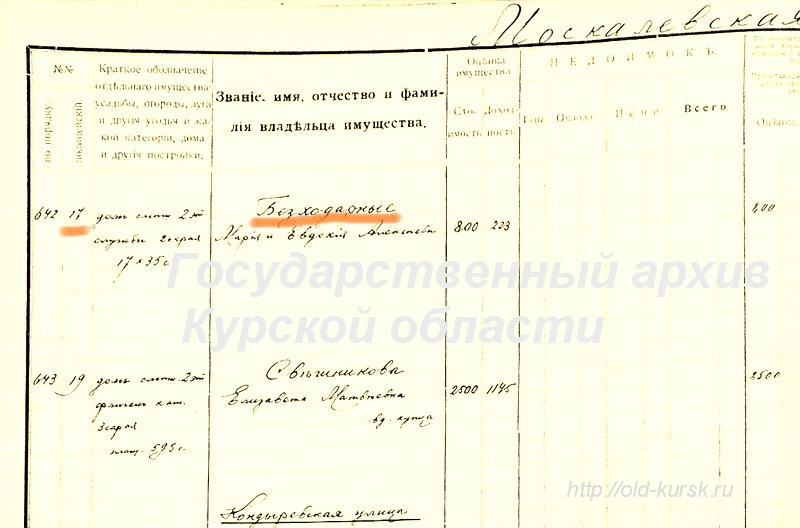 Москалевская
№№
по порядку.
полицейскій
Краткое обозначеніе
отдѣльнаго имущества
усадьбы, огороды, луга
и другія угодья и ка-
кой категоріи, дома
и другія постройки.
Званіе, имя, отчество и фами-
лія владѣльца имущества.
Оцѣнка
имущества
Сто-
имость
Доход-
ность.
НЕДОИМОКЪ.
Годы
Оклада
Пени
Всего
Оцѣнка.
642 17 домъ смѣш. 2 эт
службы 2 сарая
17 × 35 с
Безходарные
Марія и Евдокія Алексѣевы
800 223
800
643 19 домъ смѣш. 2 эт
флигель кам.
3 сарая
площ. 595 с
Свѣшникова
Елизавета Матвѣевна
вд. купца
2500 1145
2500
Кондыревская улица
Государственный архив
Курской области
http://old-kursk.ru